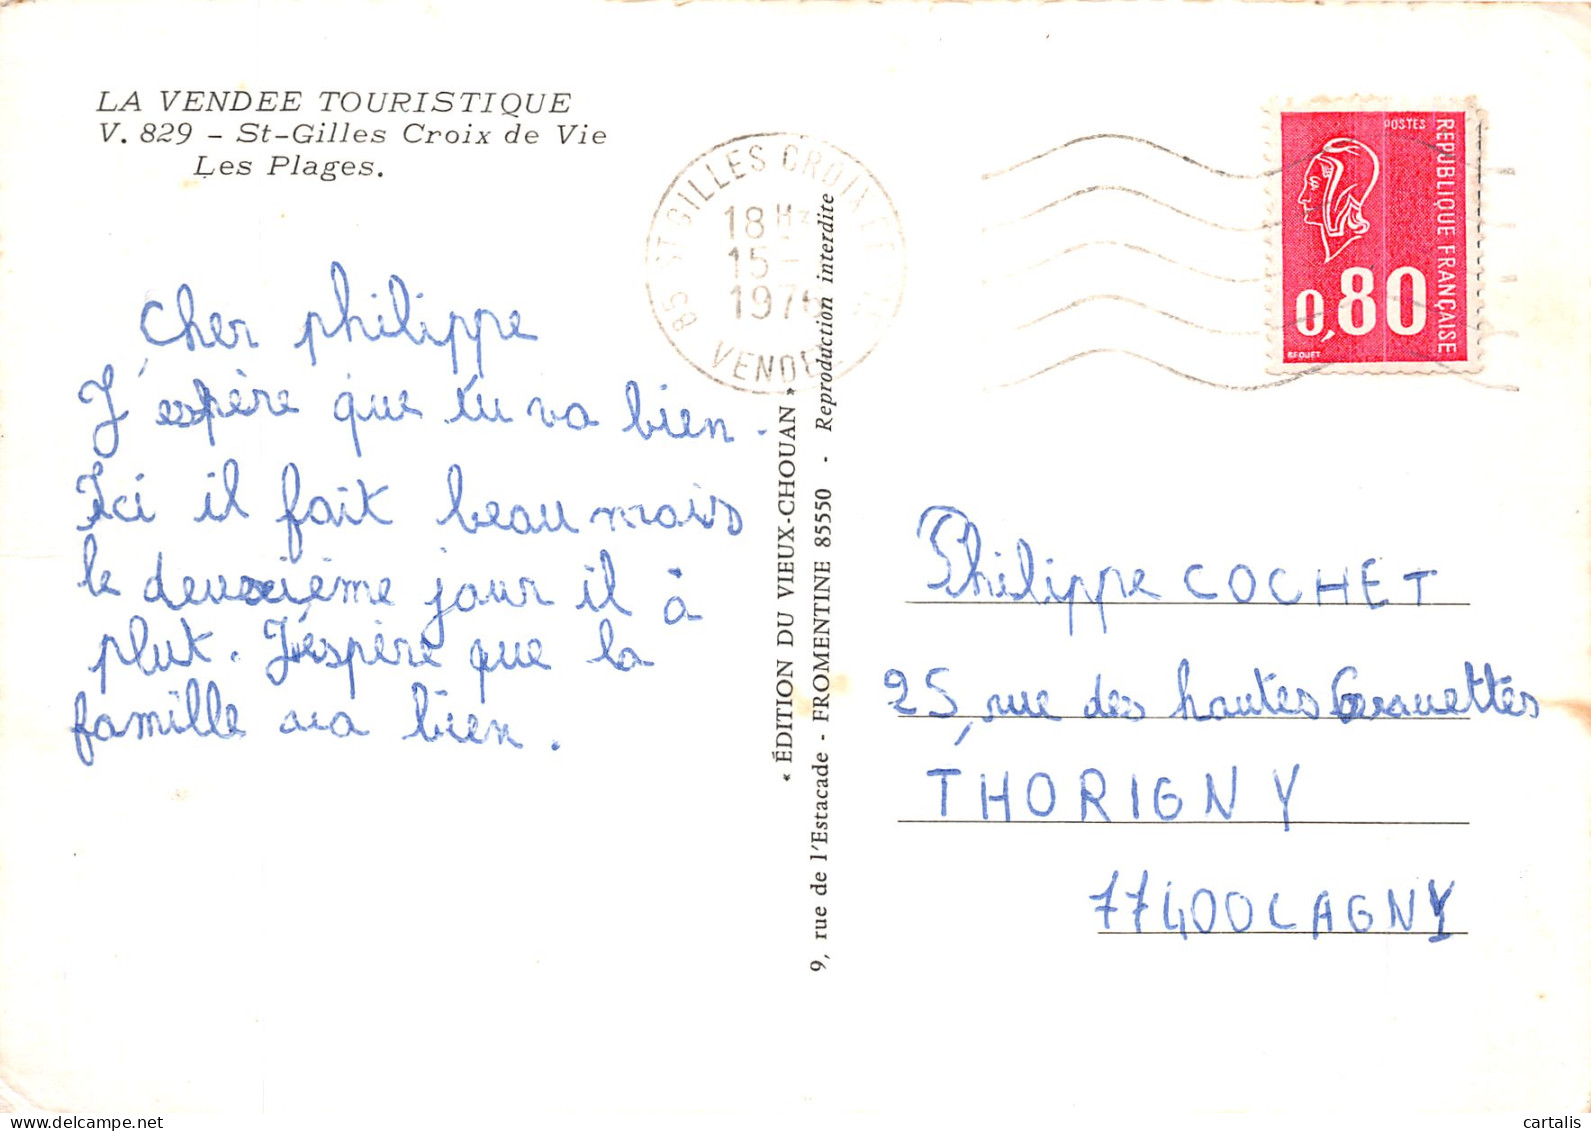 LA VENDEE TOURISTIQUE
V. 829 - St-Gilles Croix de Vie
Les Plages.
85 ST GILLES CROIX DE VIE
18 H
15 -
1976
VENDEE
POSTES
REPUBLIQUE FRANÇAISE
0,80
BEQUET
cher philippe
J'espère que tu va bien.
Ici il fait beau mais
le deuxième jour il à
plut. J'éspère que la
famille va bien.
« ÉDITION DU VIEUX-CHOUAN »
9, rue de l'Estacade - FROMENTINE 85550 - Reproduction interdite
Philippe COCHET
25, rue des hautes Gravettes
THORIGNY
77400 LAGNY
cartalis